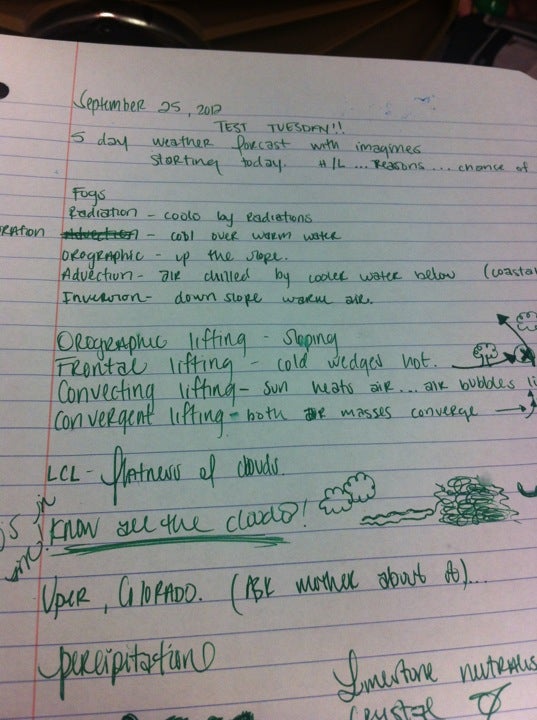 September 25, 2012
TEST TUESDAY!!
5 day weather forcast with imagines
starting today. H/L ... reasons ... chance of
Fogs
Radiation - cools by Radiations
ORATION Advection - cool over warm water
Orographic - up the slope.
Advection - air chilled by cooler water below (coastal
Inversion - down slope warm air.
Orographic lifting - sloping
Frontal lifting - cold wedges hot.
Convecting lifting - sun heats air... air bubbles li
Convergent lifting - both air masses converge
LCL - flatness of clouds.
KNOW all the clouds!
Uper, COlORADO. (Ask mother about it)...
percipitation
Limestone neutralis
crystal